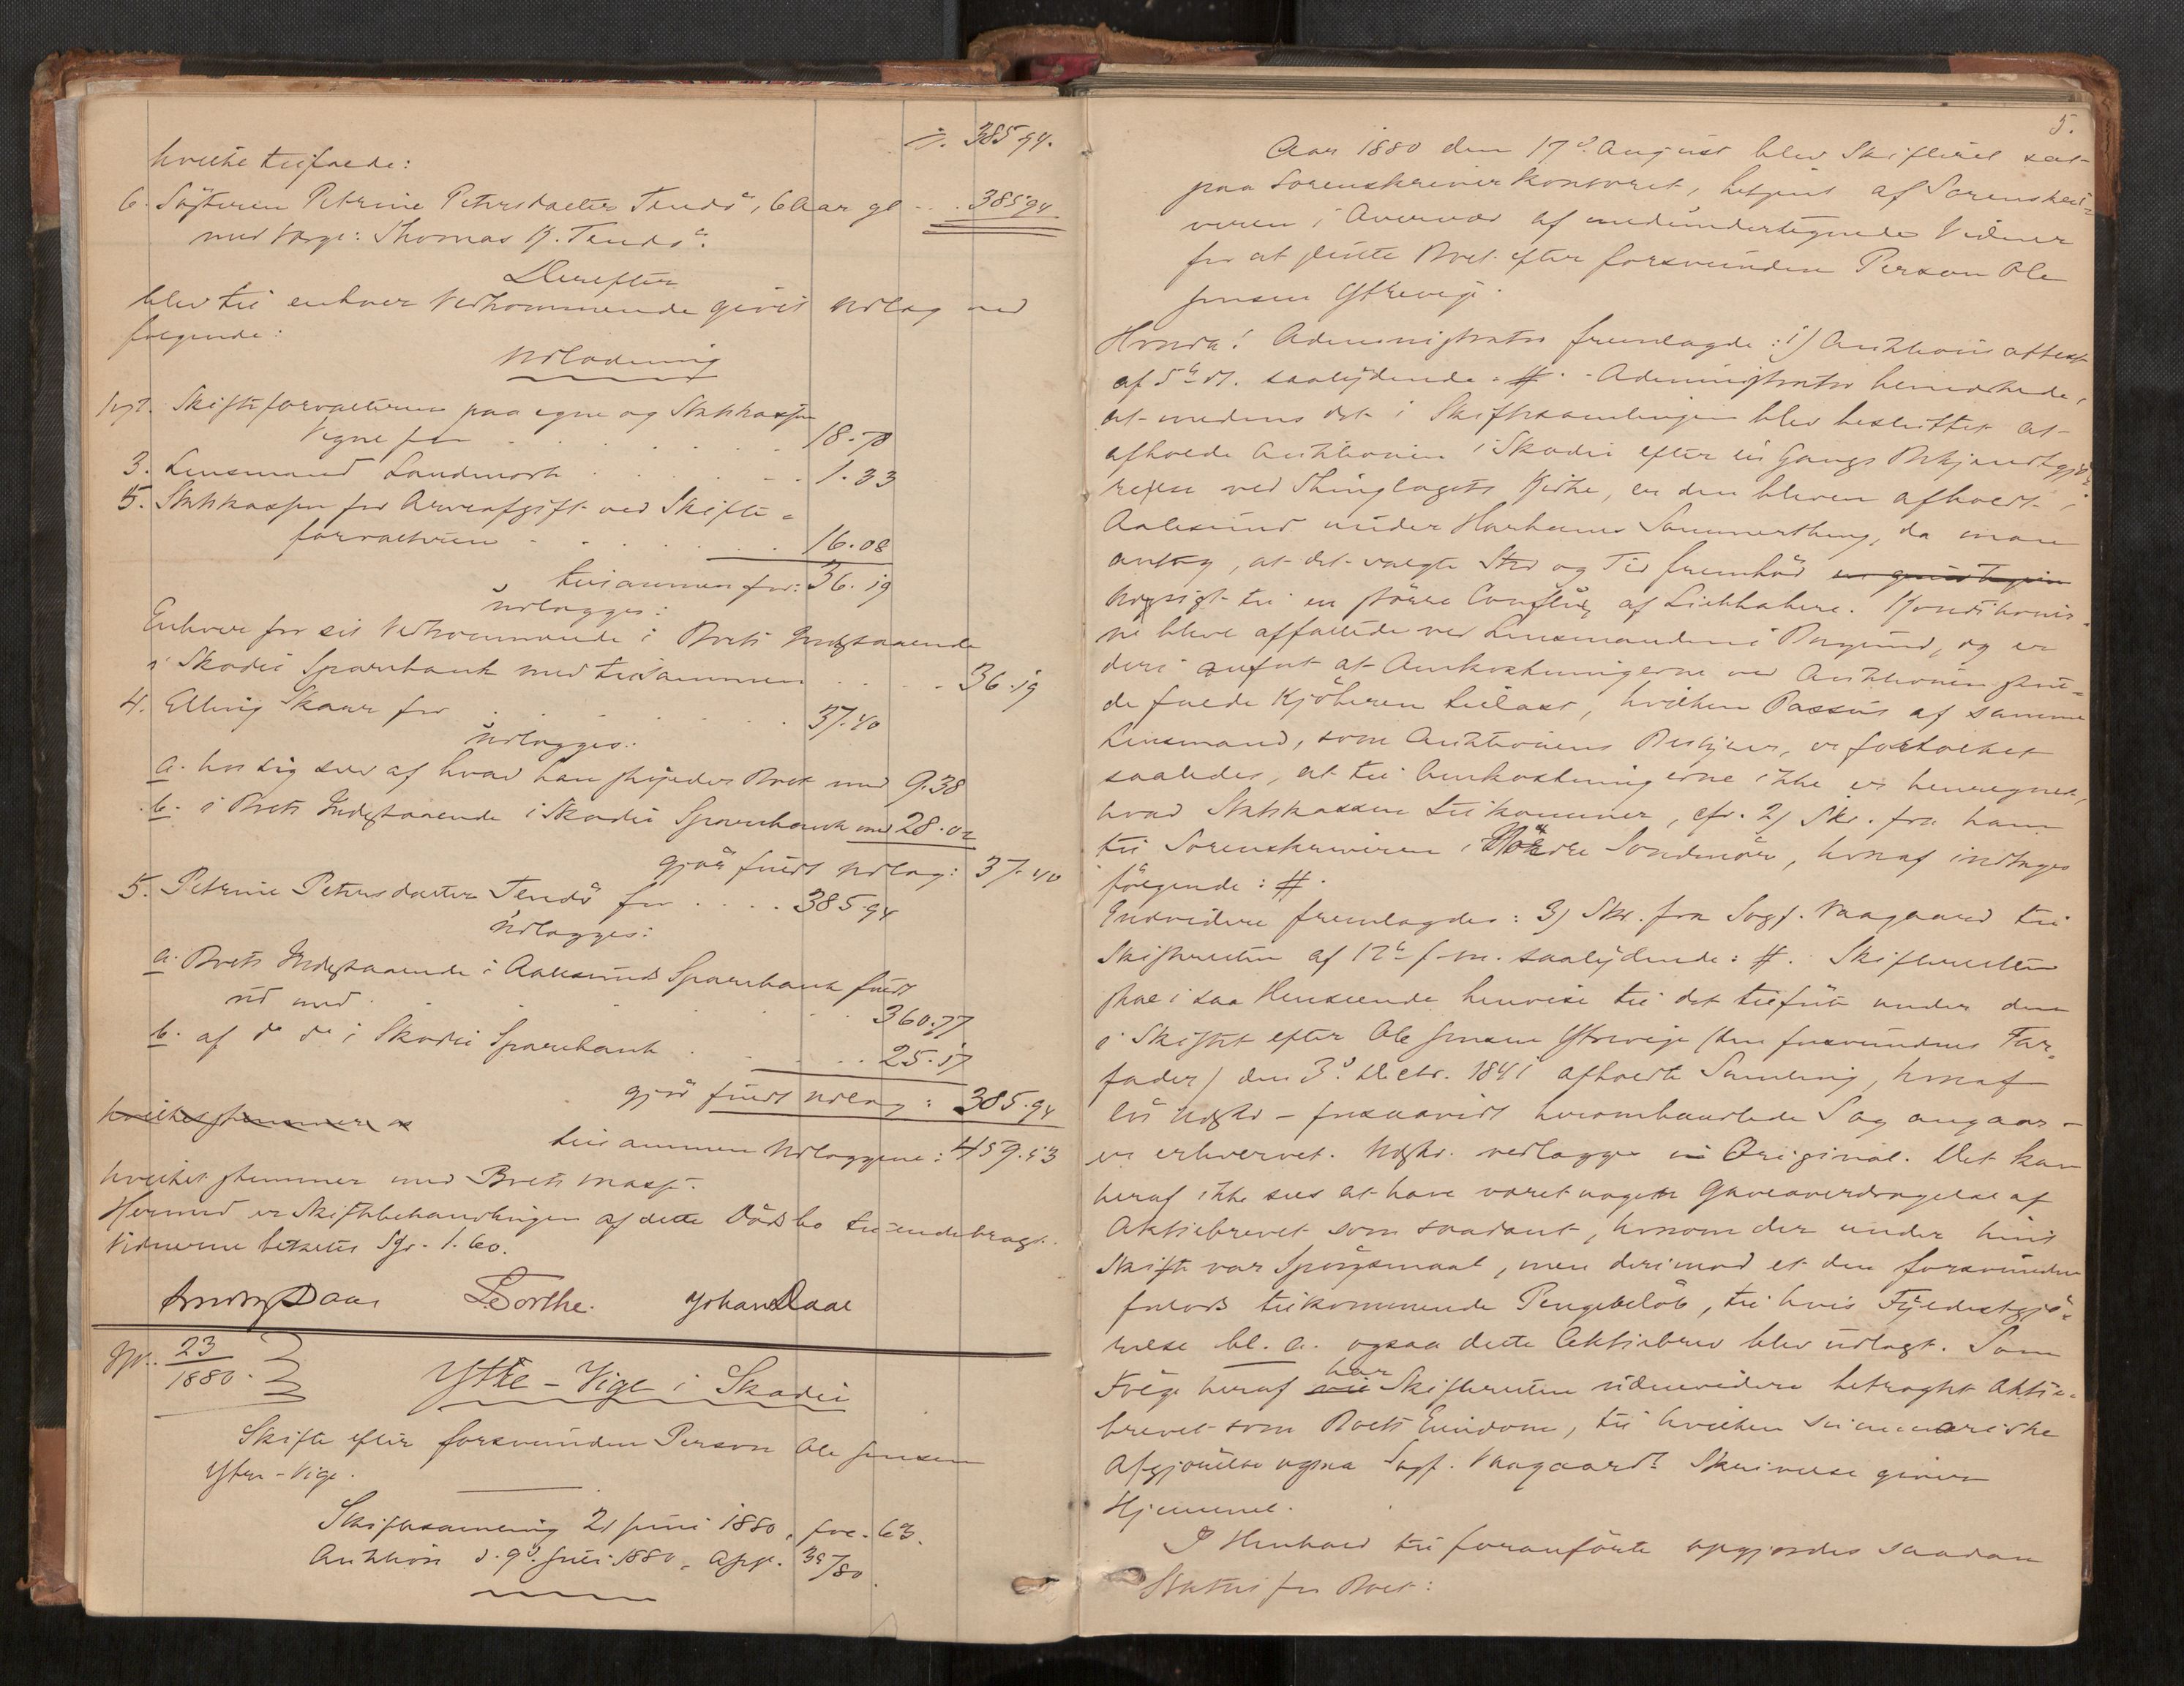 ÷ 385.94.
hvilke tilfalde:
6. Søsteren Petrine Petersdatter Tendø, 6 Aar gl. . . 385.94
med Værge: Thomas K. Tendø.
Derefter
blev til enhver Vedkommende givet Udlæg ved
følgende:
Udlodning
1 og 2. Skifteforvalteren paa egne og Statskassens
Vegne for . . . . . . 18.78
3. Lensmand Landmark . . . . . 1.33
5. Statskassen for Arveafgift ved Skifte-
forvalteren . . . . . . 16.08
tilsammen for: 36.19
udlægges:
Enhver for sit Vedkommende i Boets Indestaaende
i Skodje Sparebank med tilsammen . . . . 36.19
4. Elling Skaar for . . . . . . . 37.40
udlægges:
a. hos sig selv af hvad han skylder Boet med 9.38
b. i Boets Indestaaende i Skodje Sparebank med 28.02
gjør fuldt Udlæg: 37.40
5. Petrine Petersdatter Tendø for . . . . 385.94
udlægges:
a. Boets Indestaaende i Aalesunds Sparebank fuldt
ud med . . . . . . 360.77
b. af do do i Skodje Sparebank . . . . . 25.17
gjør fuldt Udlæg: 385.94
hvilket stemmer
tilsammen Udlæggene: 459.53
hvilket stemmer med Boets Masse.
Hermed er Skiftebehandlingen af dette Dødsbo tilendebragt.
Vidnerne betaltes 1.60.
Daae LTorthe. Johan Daae
No. 23/1880.
Ytre-Vige i Skodje
Skifte efter forsvunden Person Ole Jensen
Ytre-Vige.
Skiftesamling 21 Juni 1880, fol. 63.
Auktion d. 9d. Juli 1880, 39/80.
5.
Aar 1880 den 17d. August blev Skifteret sat
paa Sorenskriverkontoret, betjent af Sorenskri-
veren i Overvær af medundertegnede Vidner
for at slutte Boet efter forsvunden Person Ole
Jensen Ytrevige.
Hvorda! Administrator fremlagde: 1) Auktionsattest
af 5te ds. saalydende: #. - Administrator bemærkede,
at medens det i Skiftesamlingen blev besluttet at
afholde Auktionen i Skodje efter en Gangs Bekjendtgjø-
relse ved Thinglagets Kirke, er den bleven afholdt i
Aalesund under Harhams Sommerthing, da man
antog, at det valgte Sted og Tid frembød
Udsigt til en større Conflux af Liebhabere. Konditioner-
ne bleve affattede ved Lensmanden i Borgund, og er
deri anført at Omkostningerne ved Auktionen skul-
de falde Kjøberen tillast, hvilken Passus af samme
Lensmand, som Auktionens Bestyrer, er fortolket
saaledes, at til Omkostningerne ikke er henregnet,
hvad Statskassen tilkommer, cfr. 2) Skr. fra ham
til Sorenskriveren i Nordre Søndmør, hvoraf indtages
følgende: #.
Endvidere fremlagdes: 3) Skr. fra Sagf. Vaagaard til
Skifteretten af 12te f.m. saalydende: #. Skifteretten
skal i saa Henseende henvise til det tilført under den
i Skiftet efter Ole Jensen Ytrevige (den forsvundnes Far-
fader) den 3d. Decbr. 1841 afholdte Samling, hvoraf
Udskr. - forsaavidt heromhandlede Sag angaar -
er erhvervet. Udskr. vedlægges in Original. Det kan
heraf ikke sees at have været nogen Gaveoverdragelse af
Aktiebrevet som saadant, hvorom der under hint
Skifte var Spørgsmaal, men derimod et den forsvundne
tilkommende Pengebeløb, til hvis Fyldestgjø-
relse bl. a. ogsaa dette Aktiebrev blev udlagt. Som
Følge heraf har Skifteretten uden videre betragtet Aktie-
brevet som Boets Eiendom, til hvilken summariske
Afgjørelse ogsaa Sagf. Vaagaards Skrivelse giver
Hjemmel.
I Henhold til foranførte opgjordes saadan
Status for Boet: